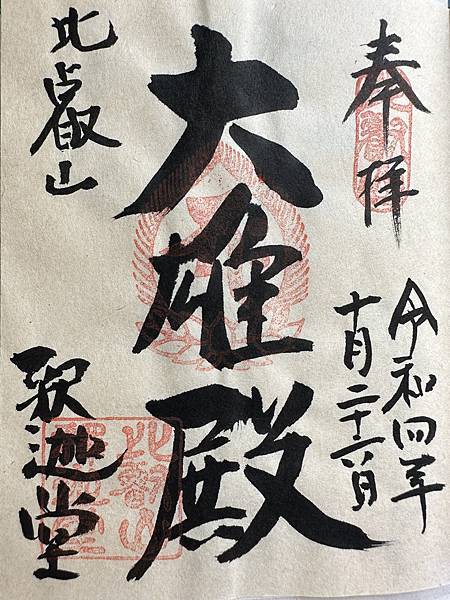 奉拝
令和四年
十月二十六日
大雄殿
比叡山
釈迦堂